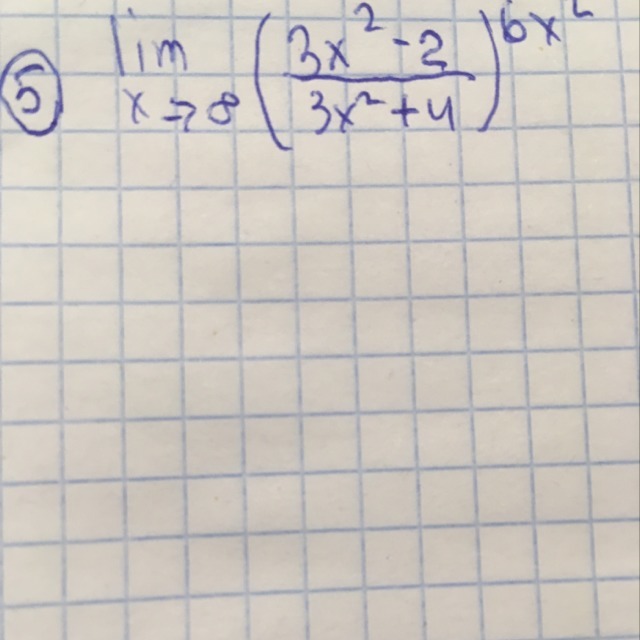 5 lim x→∞ (3x²-2 / 3x²+4)^6x